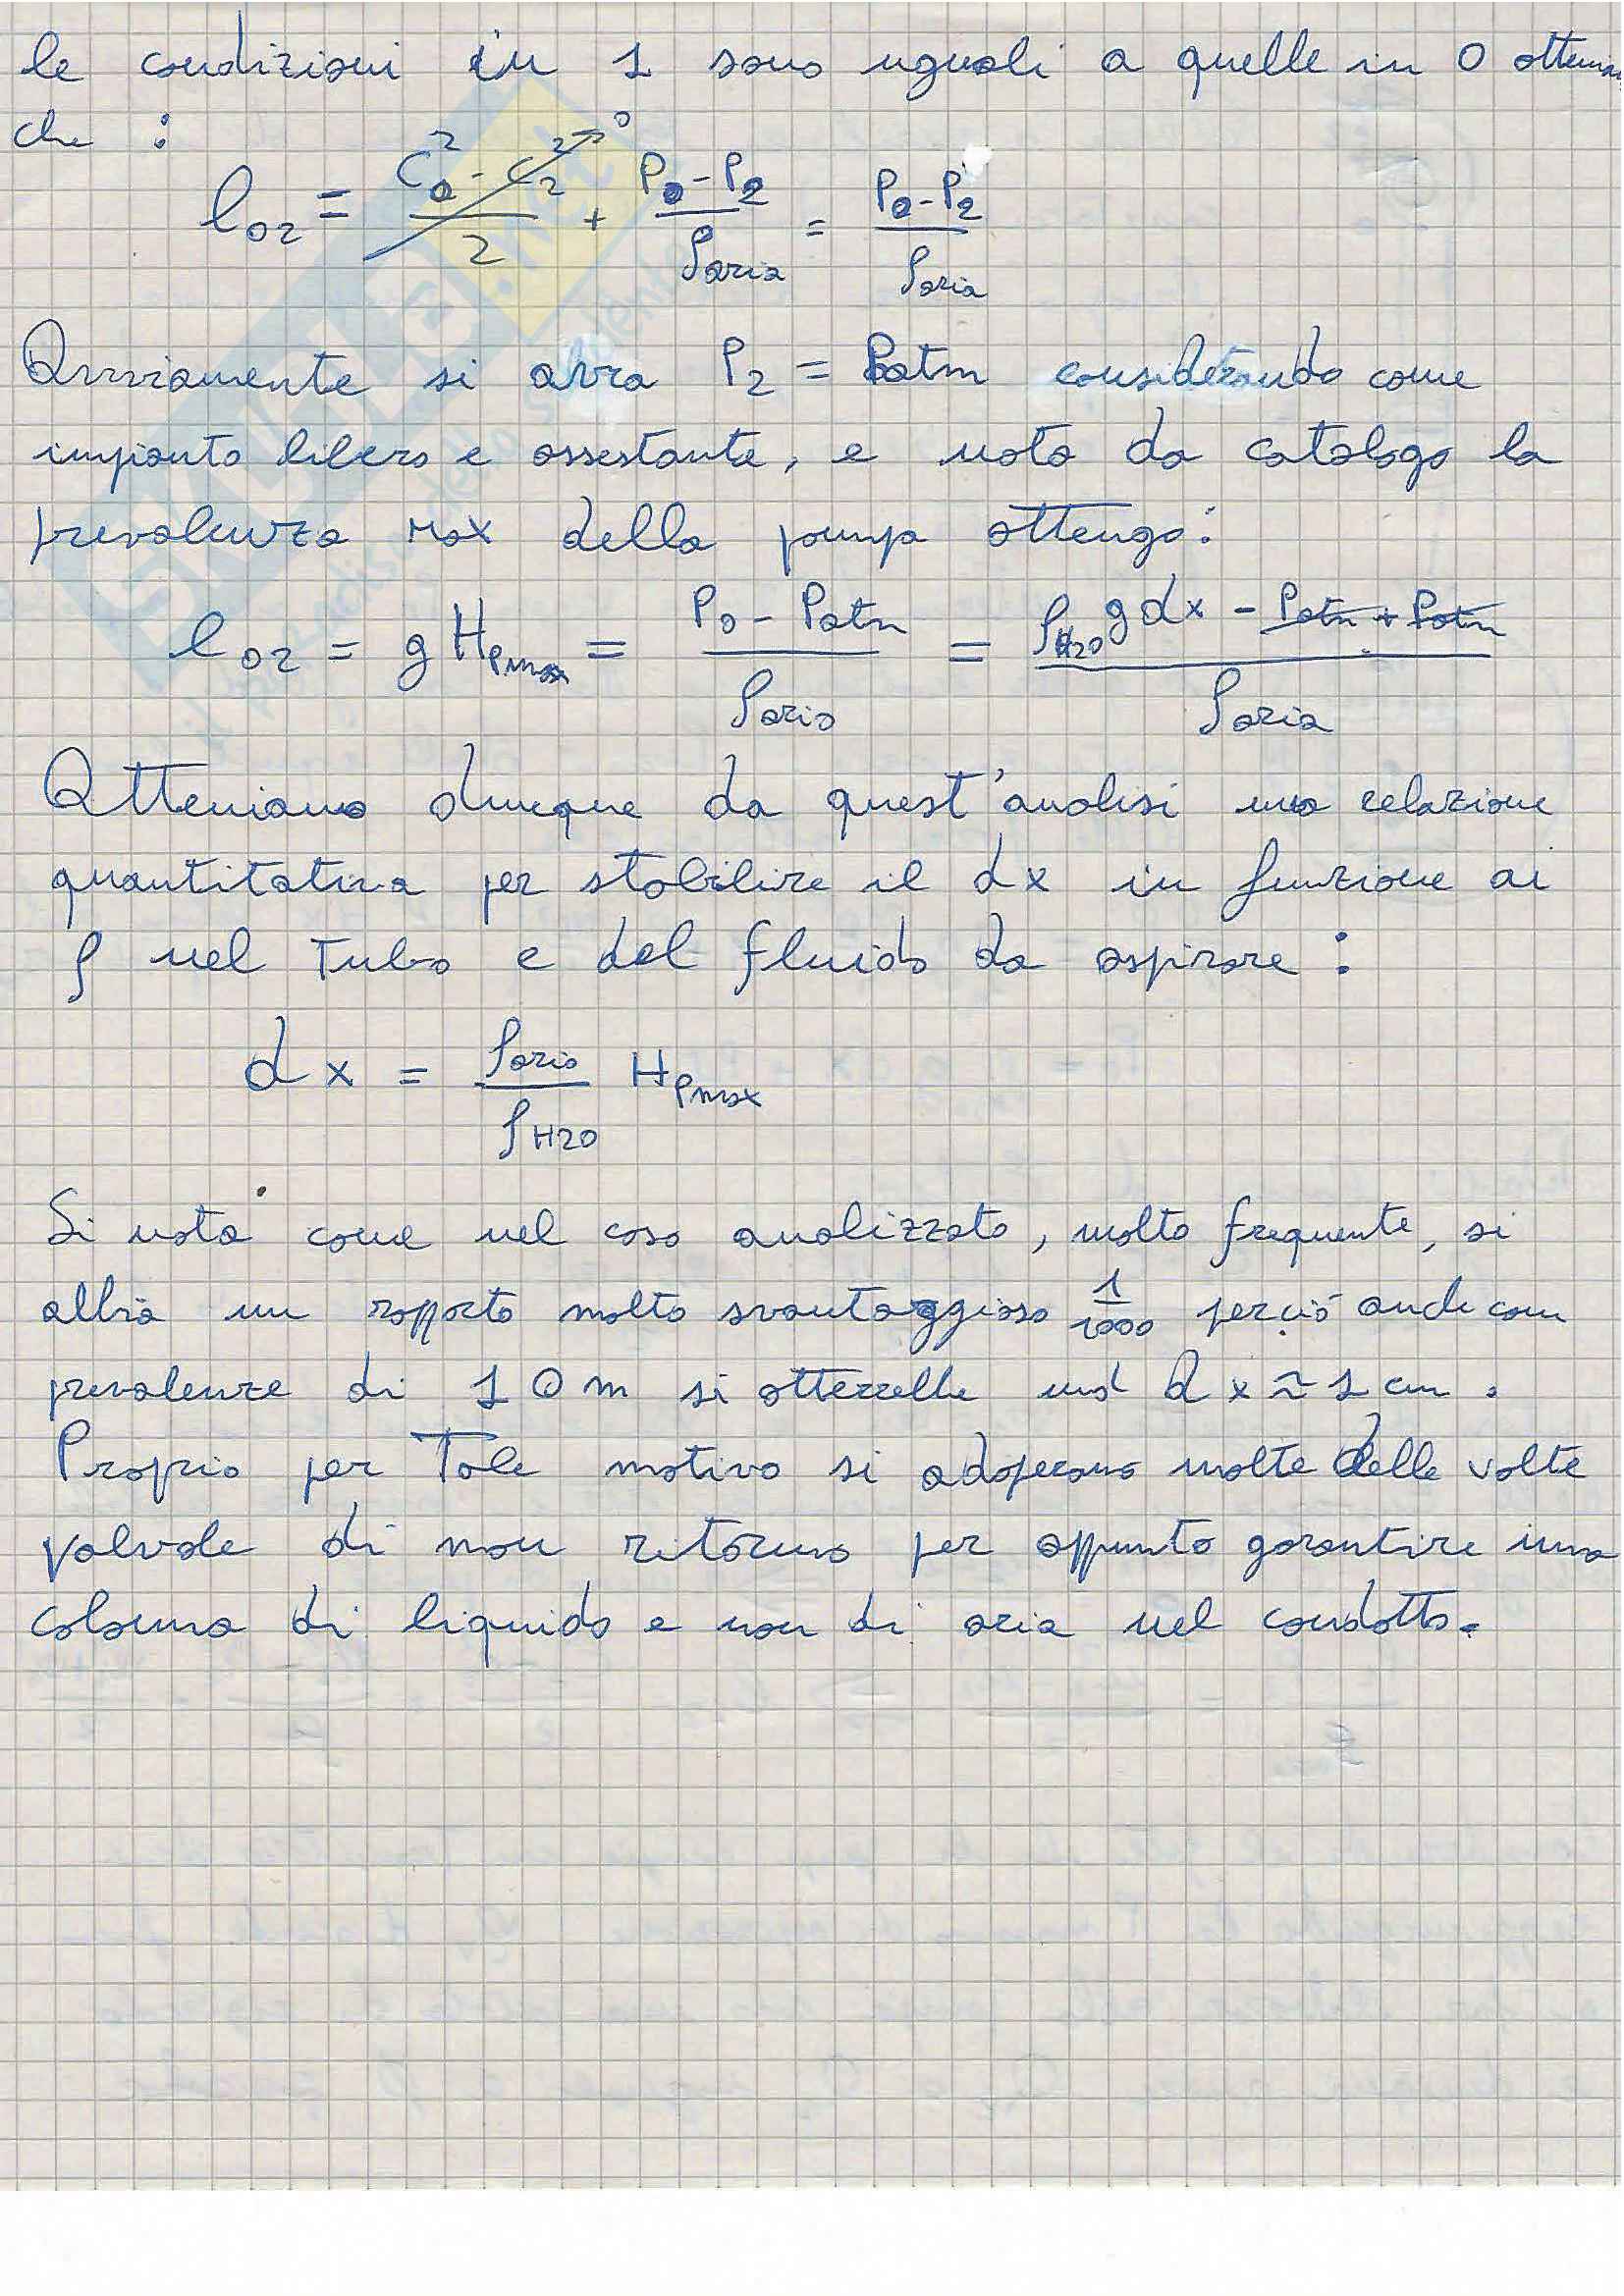 le condizioni in 1 sono uguali a quelle in 0 otteniam
che :
l02 = (C0² - C2²)/2 → 0 + (P0 - P2)/ρaria = (P0 - P2)/ρaria
Ovviamente si avra P2 = Patm considerando come
impianto libero e assestante, e noto da catalogo la
prevalenza max della pompa ottengo:
l02 = g HPmax = (P0 - Patm)/ρaria = (ρH2O g dx - Patm + Patm)/ρaria
Otteniamo dunque da quest'analisi una relazione
quantitativa per stabilire il dx in funzione ai
ρ nel tubo e del fluido da aspirare :
dx = ρaria/ρH2O HPmax
Si nota come nel caso analizzato, molto frequente, si
abbia un rapporto molto svantaggioso 1/1000 perciò anche con
prevalenze di 10 m si otterrebbe un dx ≈ 1 cm .
Proprio per Tale motivo si adoperano molte delle volte
valvole di non ritorno per appunto garantire una
colonna di liquido e non di aria nel condotto.